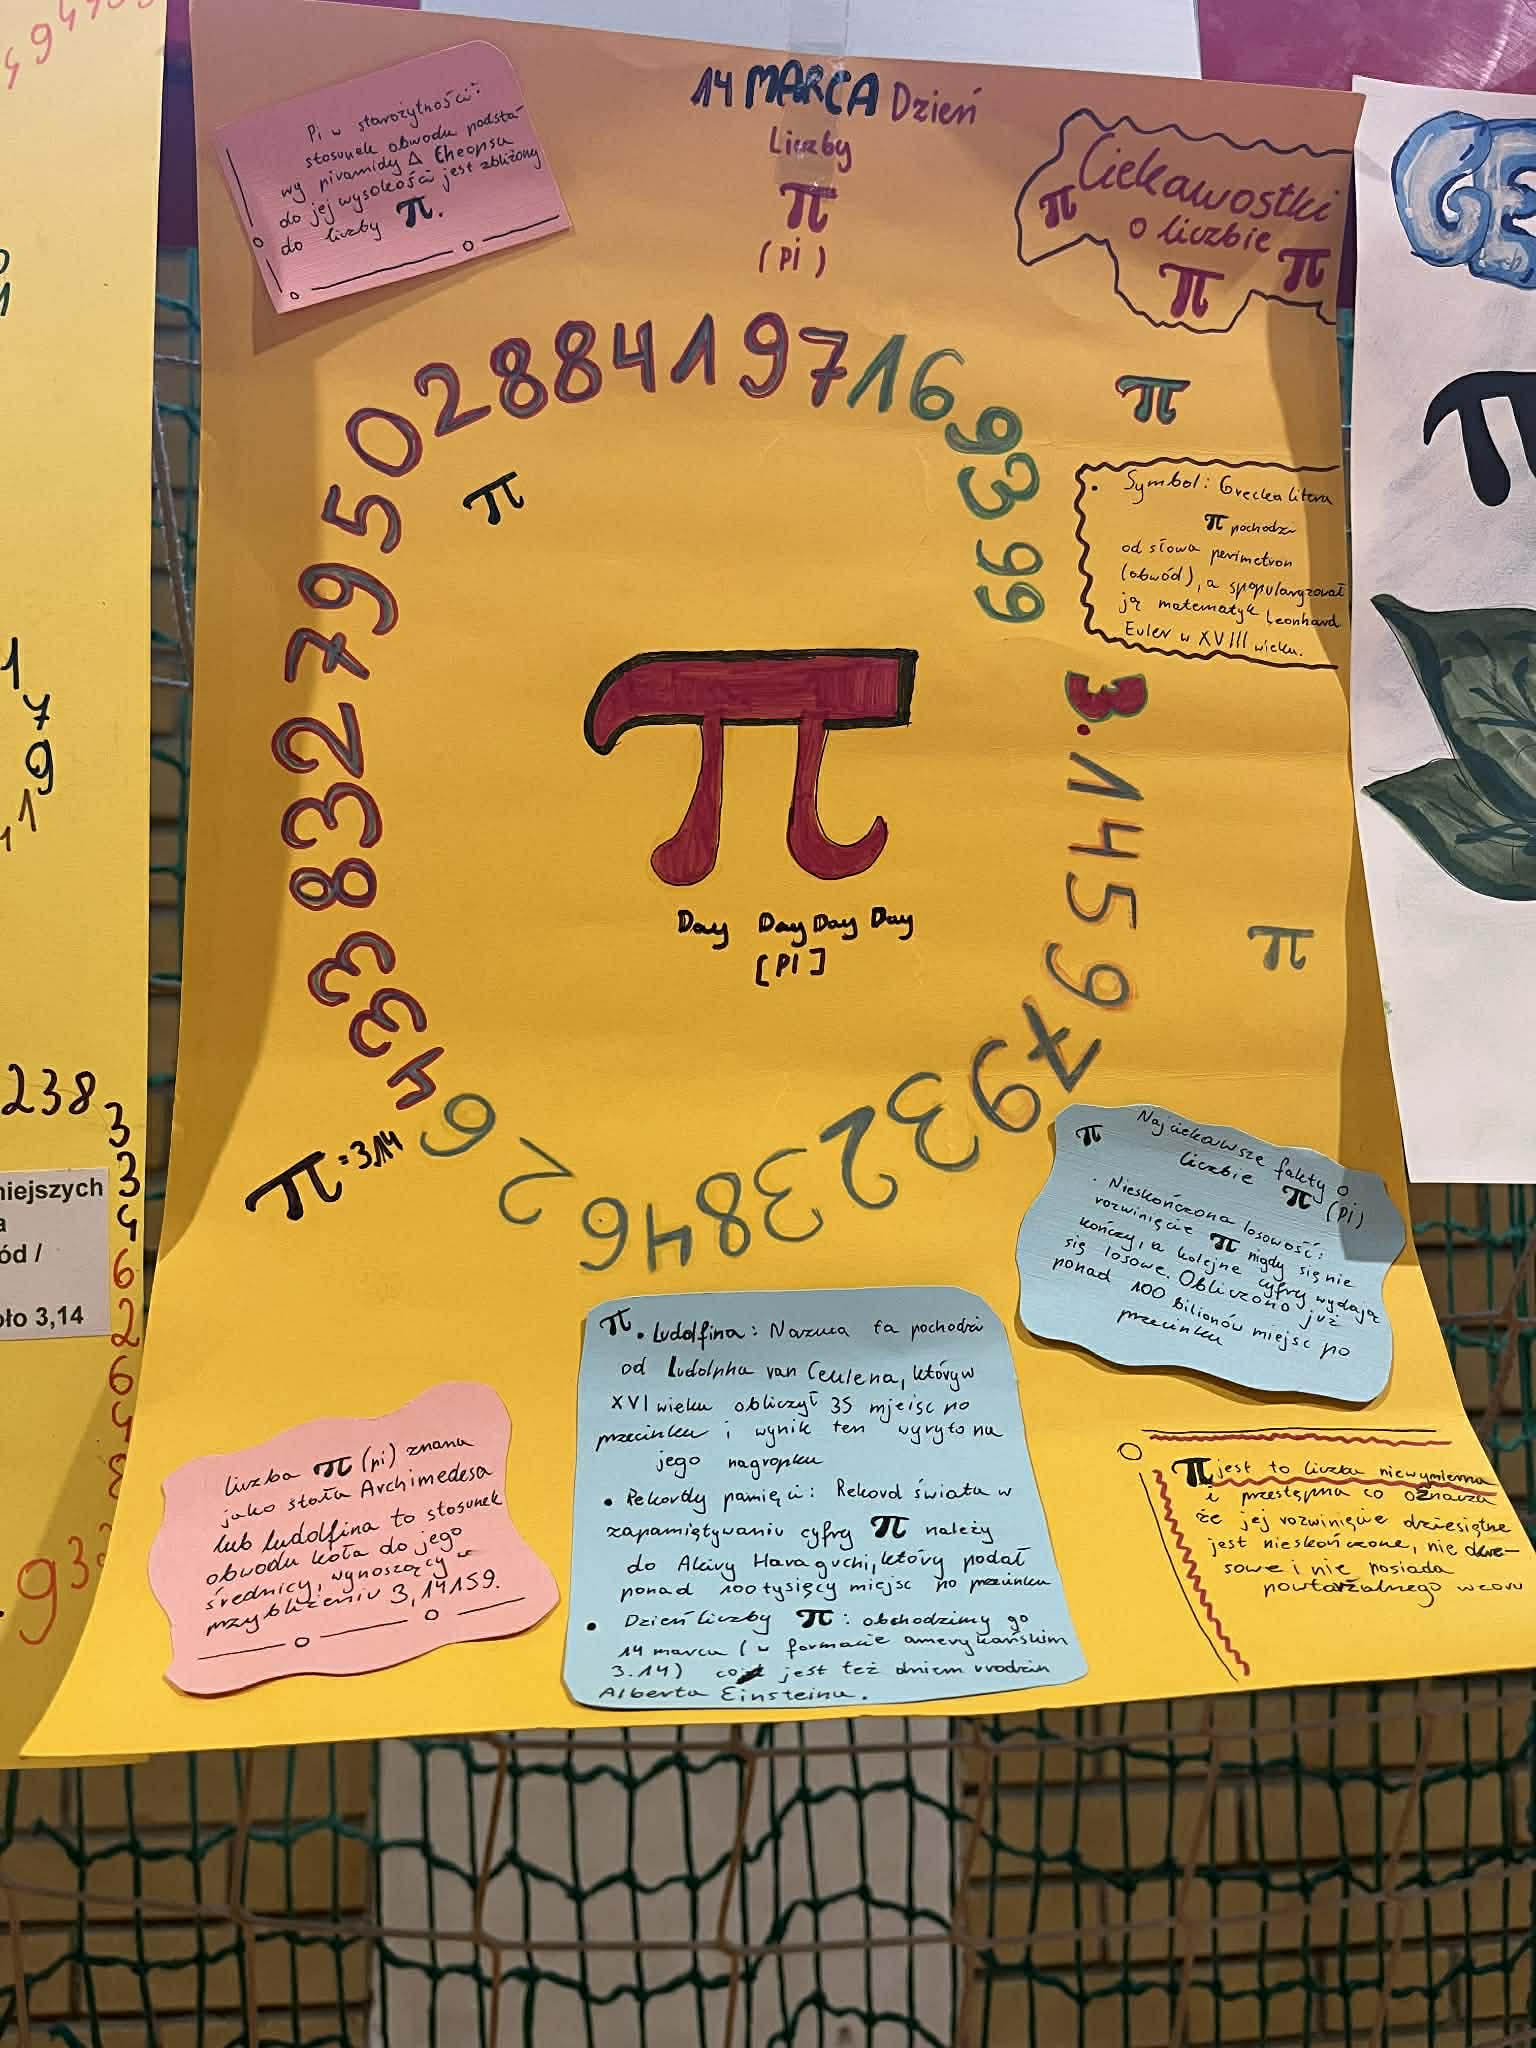 14 MARCA Dzień
Liczby
π
(Pi)
Pi w starożytności:
stosunek obwodu podsta-
wy piramidy Δ Cheopsa
do jej wysokości jest zbliżony
do liczby π.
Ciekawostki
π o liczbie
π π
π
• Symbol: Grecka litera
π pochodzi
od słowa perimetron
(obwód), a spopularyzował
ją matematyk Leonhard
Euler w XVIII wieku.
3.14159793238462643383279502884197169399
π
π
Day Day Day Day
[PI]
π
π = 3.14
π Najciekawsze fakty o
liczbie π (Pi)
• Nieskończona losowość:
rozwinięcie π nigdy się nie
kończy, a kolejne cyfry wydają
się losowe. Obliczono już
ponad 100 bilionów miejsc po
przecinku
π • Ludolfina: Nazwa ta pochodzi
od Ludolpha van Ceulena, który w
XVI wieku obliczył 35 miejsc po
przecinku i wynik ten wyryto na
jego nagrobku
• Rekordy pamięci: Rekord świata w
zapamiętywaniu cyfry π należy
do Akiry Haraguchi, który podał
ponad 100 tysięcy miejsc po przecinku
• Dzień liczby π: obchodzimy go
14 marca (w formacie amerykańskim
3.14) co jest też dniem urodzin
Alberta Einsteina.
liczba π (pi) znana
jako stała Archimedesa
lub ludolfina to stosunek
obwodu koła do jego
średnicy, wynoszący w
przybliżeniu 3,14159.
π jest to liczba niewymierna
i przestępna co oznacza
że jej rozwinięcie dziesiętne
jest nieskończone, nie okre-
sowe i nie posiada
powtarzalnego wzoru
GE
π
1
7
9
1
238
3
3
4
6
2
6
4
niejszych
a
ód /
oło 3,14
93